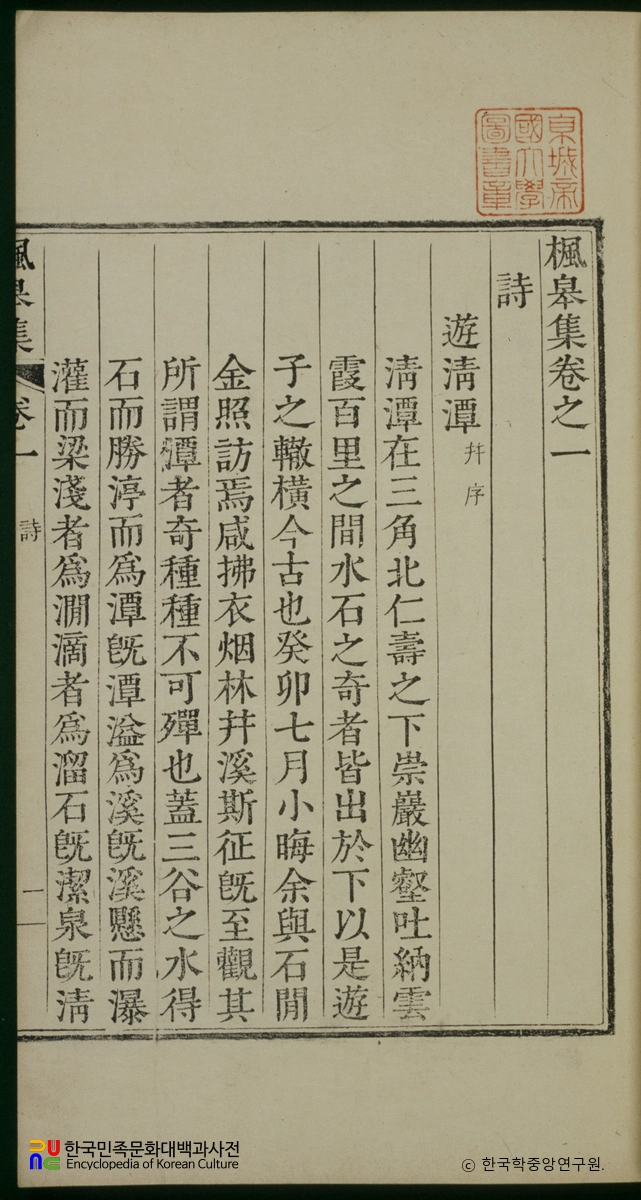 京城帝
國大學
圖書章
楓皋集卷之一
詩
遊淸潭 幷序
淸潭在三角北仁壽之下崇巖幽壑吐納雲
霞百里之間水石之奇者皆出於下以是遊
子之轍橫今古也癸卯七月小晦余與石閒
金照訪焉咸拂衣烟林幷溪斯征旣至觀其
所謂潭者奇種種不可殫也蓋三谷之水得
石而勝渟而爲潭旣潭溢爲溪旣溪懸而瀑
灌而梁淺者爲澗滴者爲溜石旣潔泉旣淸
楓皋集 卷一 詩 一
한국민족문화대백과사전
Encyclopedia of Korean Culture
ⓒ 한국학중앙연구원.